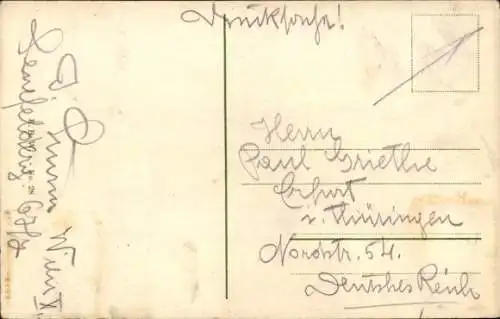 Drucksache!
Herrn
Paul Griethe
Erfurt
i. Thüringen
Nordstr. 54.
Deutsches Reich
Wien